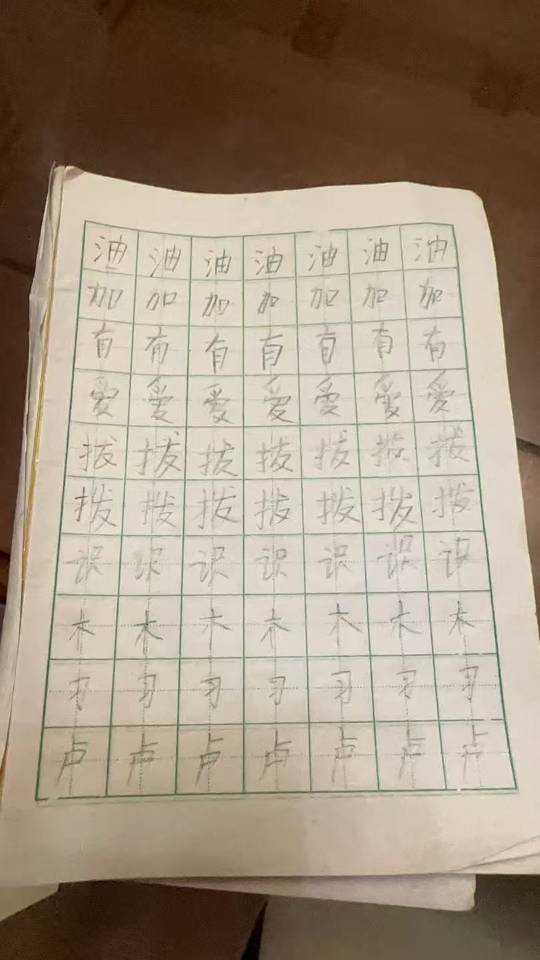 油油油油油油油
加加加加加加加
有有有有有有有
爱爱爱爱爱爱爱
拔拔拔拔拔拔拔
拨拨拨拨拨拨拨
识识识识识识识
木木木木木木木
习习习习习习习
卢卢卢卢卢卢卢